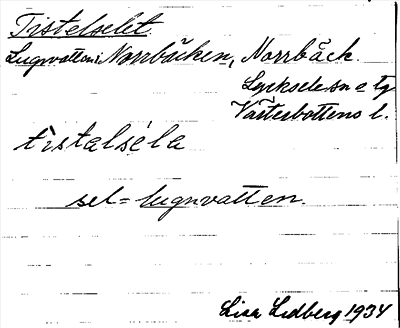 Tistelselet.
Lugnvatten i Norrbäcken, Norrbäck.
Lycksele sn o tg
Västerbottens l.
tìstalséla
sel = lugnvatten.
Lisa Lidberg 1934